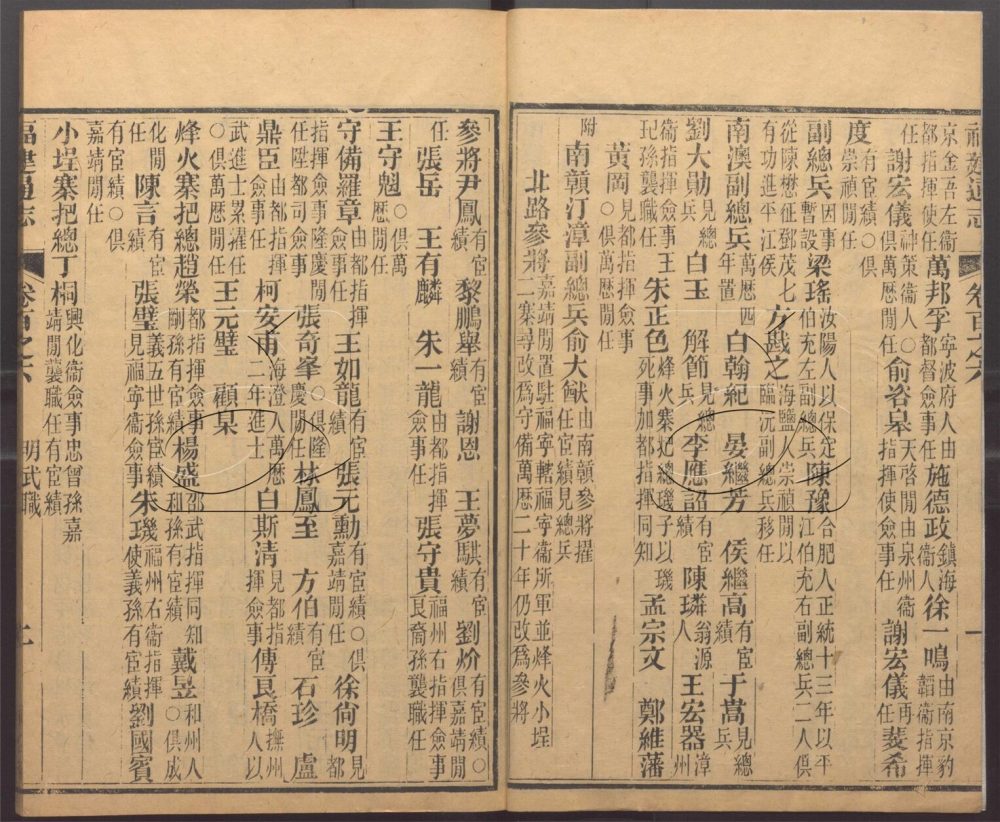 福建通志 卷百之六 一
京金吾左衞都指揮使任萬邦孚寧波府人由都督僉事任施德政鎮海衞人徐一鳴由南京豹韜衞指揮
任謝宏儀神策衞人○俱萬歷閒任俞咨皋天啓閒由泉州衞指揮使僉事任謝宏儀再任裴希
度有宦績○俱崇禎閒任
副總兵因事暫設梁瑤汝陽人以保定伯充左副總兵陳豫合肥人正統十三年以平江伯充右副總兵二人俱
從陳懋征鄧茂七有功進平江侯方戡之海鹽人崇禎閒以臨沅副總兵移任
南澳副總兵萬歷四年置白翰紀 晏繼芳 侯繼高有宦績于嵩見總兵
劉大勛見總兵白玉 解節見總兵李應詔有宦績陳璘翁源人王宏器漳州
衞指揮僉事王玘孫襲職任朱正色烽火寨把總璣子以死事加都指揮同知孟宗文 鄭維藩
黃岡見都指揮僉事○俱萬歷閒任
附南贛汀漳副總兵俞大猷由南贛參將擢任宦績見總兵
北路參將嘉靖閒置駐福寧轄福寧衞所軍並烽火小埕二寨尋改爲守備萬歷二十年仍改爲參將
參將尹鳳有宦績黎鵬舉有宦績謝恩 王夢騏有宦績劉炌有宦績○俱嘉靖閒
任張岳 王有麟 朱一龍由都指揮僉事任張守貴福州右指揮僉事良裔孫襲職任
王守魁○俱萬歷閒任
守備羅章由都指揮僉事任王如龍有宦績張元勳有宦績○俱嘉靖閒任徐尚明見都
指揮僉事隆慶閒任陞都司僉事張奇峯○俱隆慶閒任林鳳至 方伯有宦績石珍 盧
鼎臣由都指揮僉事任柯安甫海澄人萬歷二年進士白斯清見都指揮僉事傅良橋撫州人以
武進士累擢任○俱萬歷閒任王元璧 顧杲
烽火寨把總趙榮都指揮僉事剛孫有宦績楊盛邵武指揮同知和孫有宦績戴昱和州人○俱成
化閒任陳言有宦績張璧義五世孫宦績見福寧衞僉事朱璣福州右衞指揮使義孫有宦績劉國賓
有宦績○俱嘉靖閒任
小埕寨把總丁桐興化衞僉事忠曾孫嘉靖閒襲職任有宦績
福建通志 卷百之六 明武職